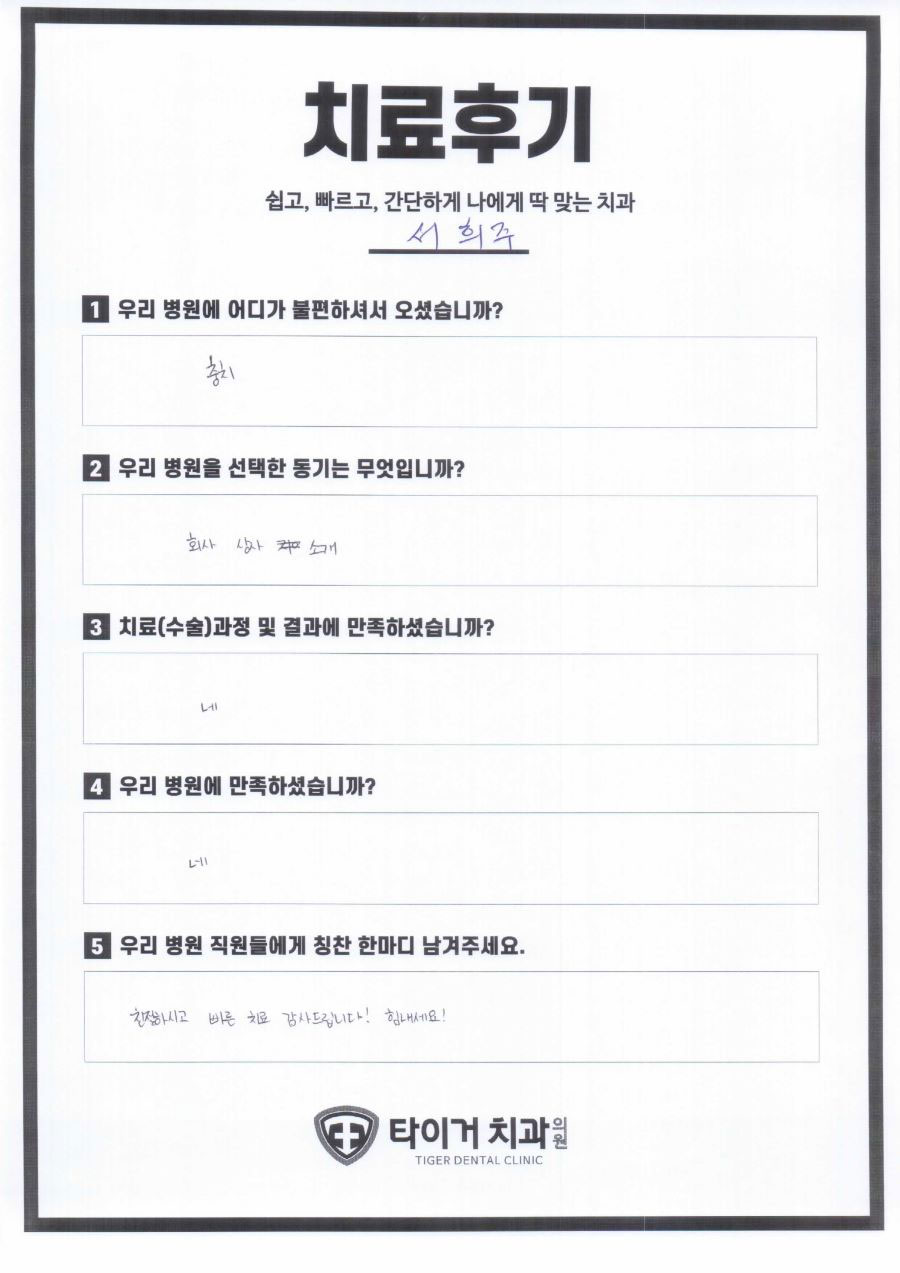 치료후기
쉽고, 빠르고, 간단하게 나에게 딱 맞는 치과
서희주
1 우리 병원에 어디가 불편하셔서 오셨습니까?
충치
2 우리 병원을 선택한 동기는 무엇입니까?
회사 상사 소개
3 치료(수술)과정 및 결과에 만족하셨습니까?
네
4 우리 병원에 만족하셨습니까?
네
5 우리 병원 직원들에게 칭찬 한마디 남겨주세요.
친절하시고 빠른 치료 감사드립니다! 힘내세요!
타이거 치과의원
TIGER DENTAL CLINIC